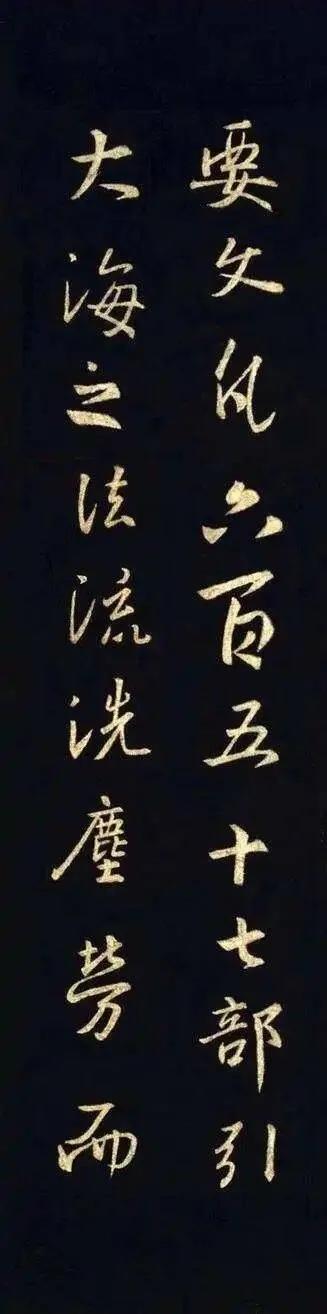 要文凡六百五十七部引
大海之法流洗塵勞而